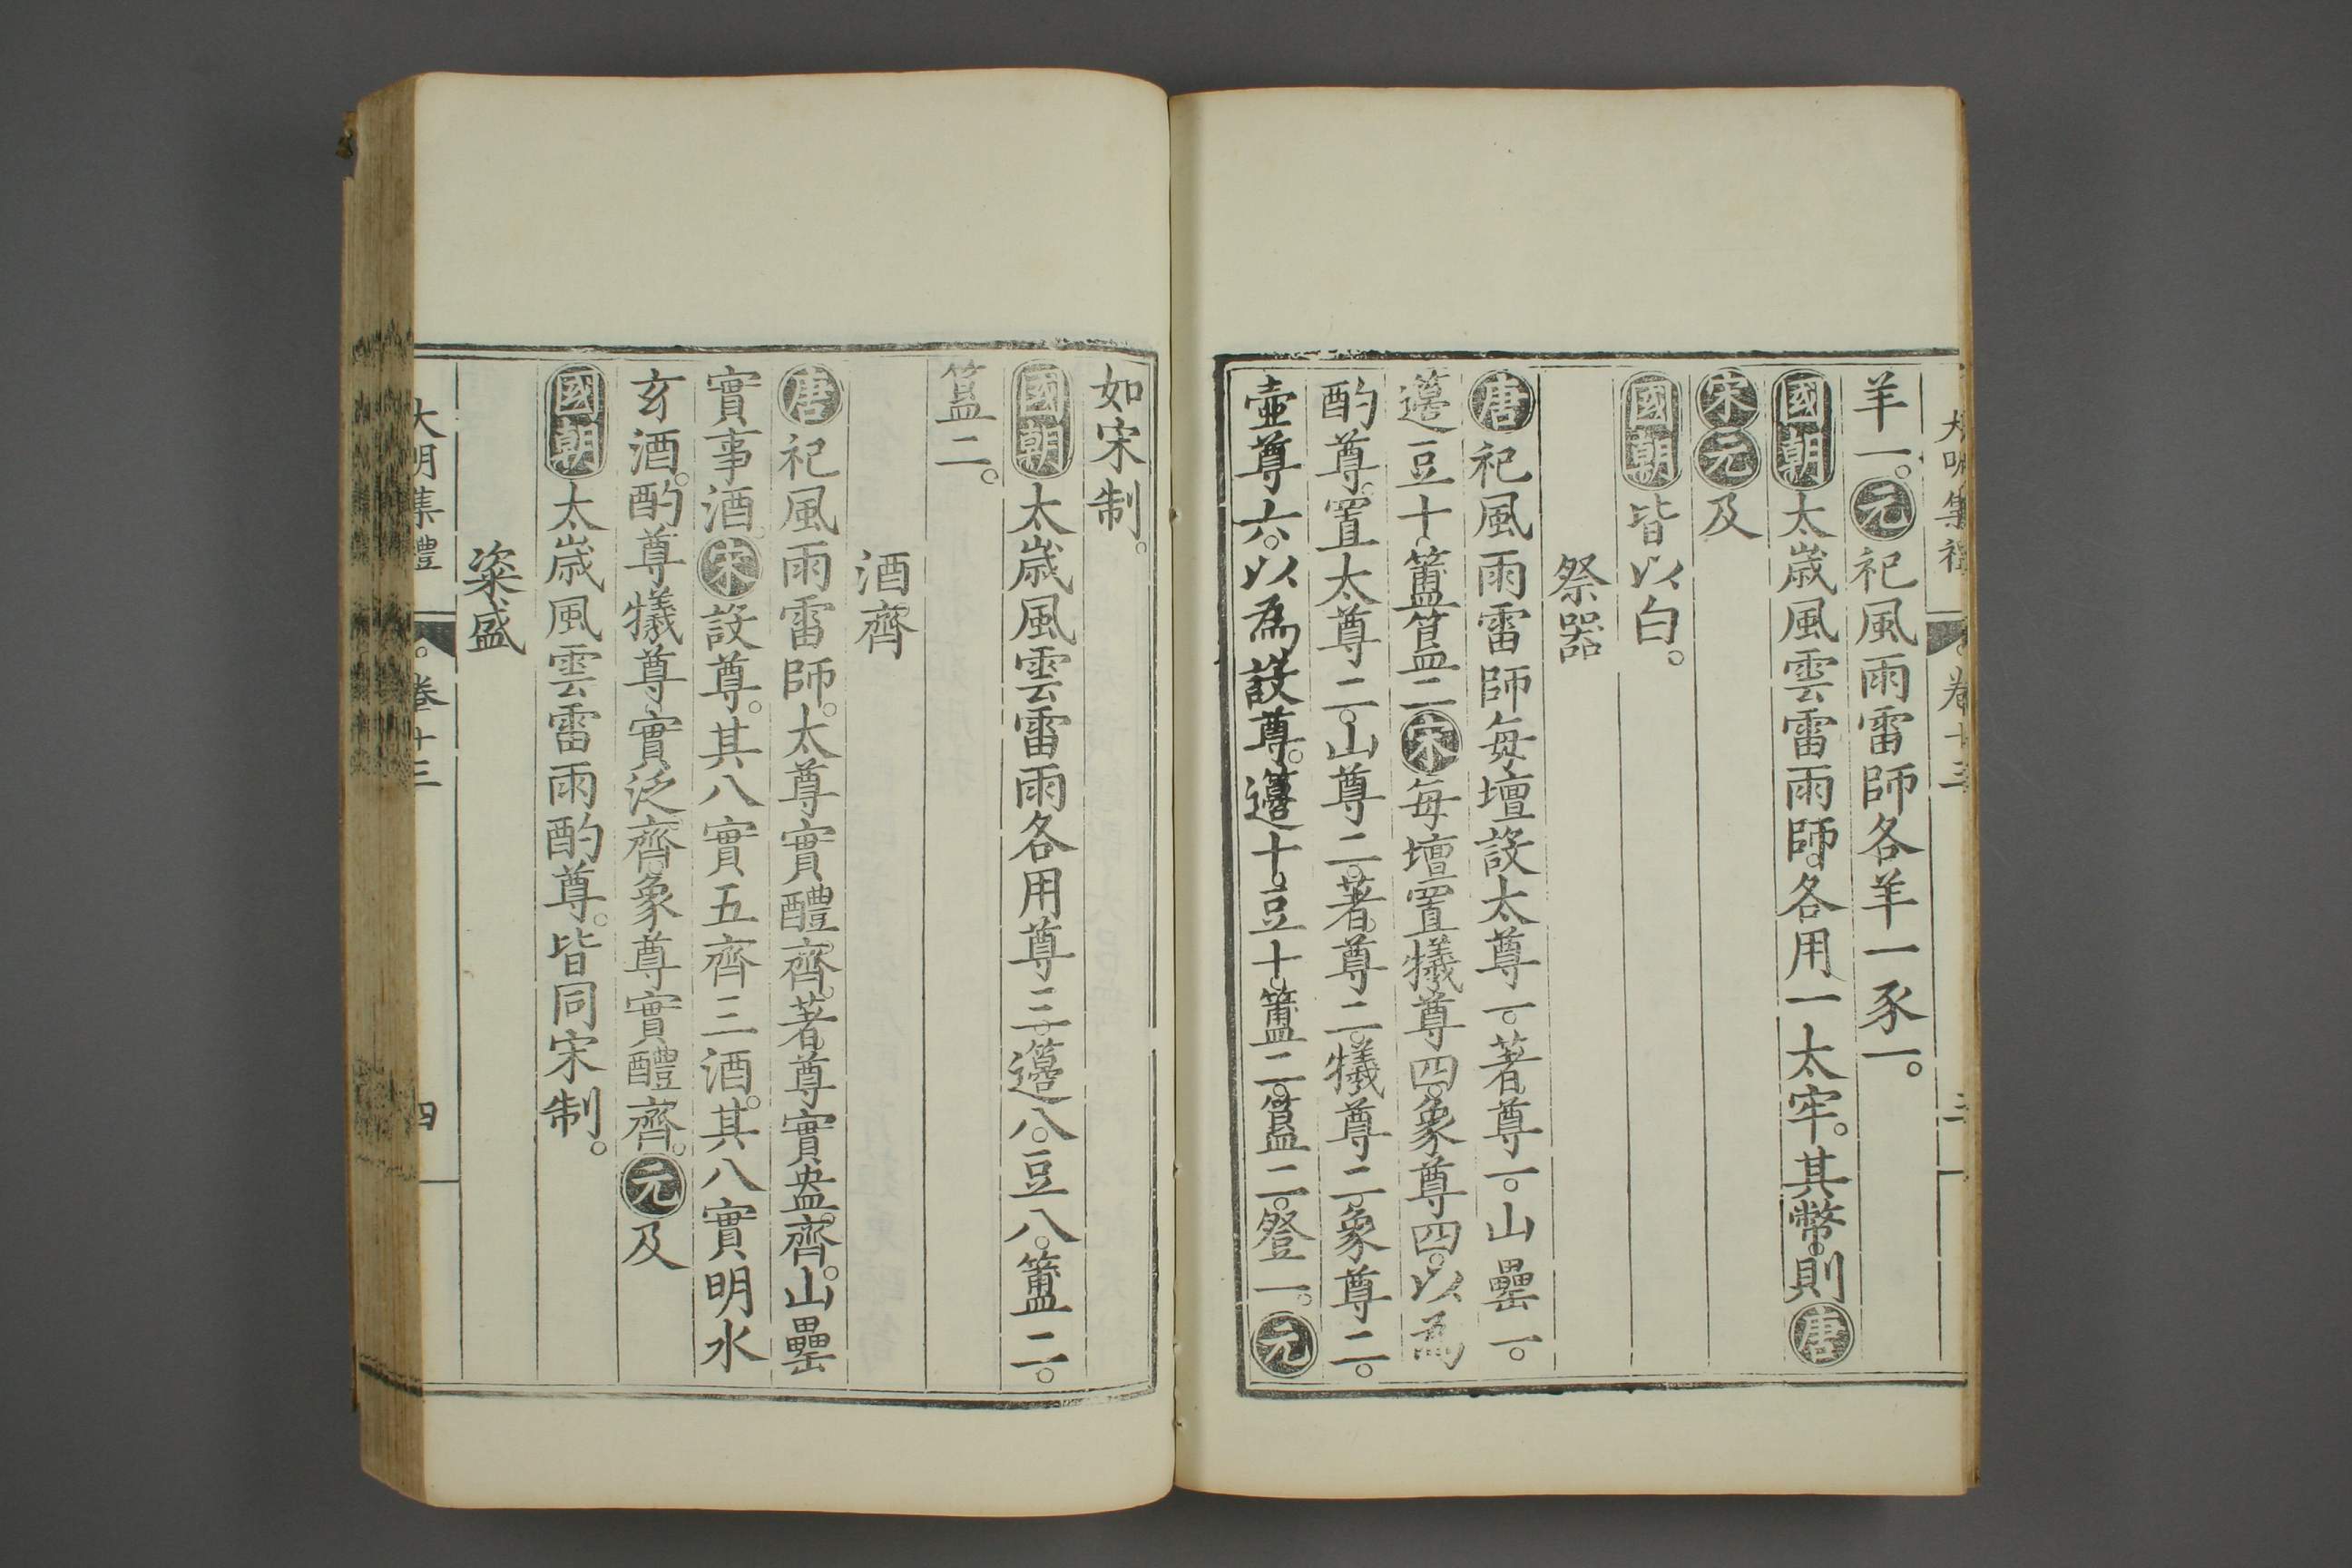 大明集禮 卷十三 三
羊一。元祀風雨雷師各羊一豕一。
國朝太歲風雲雷雨師。各用一太牢。其幣。則唐
宋元及
國朝皆以白。
祭器
唐祀風雨雷師每壇設太尊一。著尊一。山罍一。
籩豆十。簠簋二宋每壇置犧尊四。象尊四。以為
酌尊。置太尊二。山尊二。著尊二。犧尊二。象尊二。
壺尊六。以為設尊。籩十。豆十。簠二。簋二。登一。元
如宋制。
國朝太歲風雲雷雨各用尊三。籩八。豆八。簠二。
簋二。
酒齊
唐祀風雨雷師。太尊實醴齊。著尊實盎齊。山罍
實事酒。宋設尊。其八實五齊三酒。其八實明水
玄酒。酌尊犧尊實泛齊。象尊實醴齊。元及
國朝太歲風雲雷雨酌尊。皆同宋制。
粢盛
大明集禮 卷十三 四